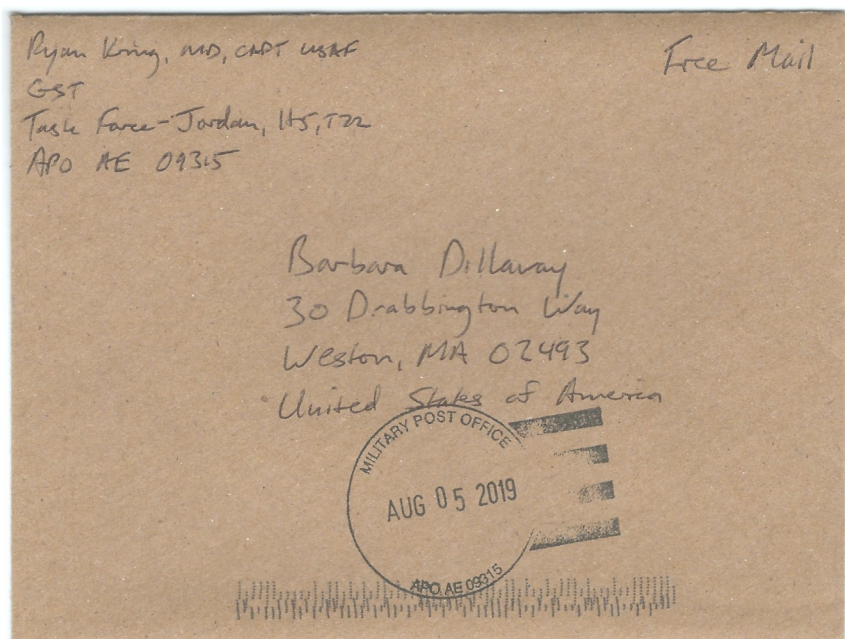 Ryan Kring, MD, CAPT USAF
Free Mail
GST
Task Force-Jordan, H5, T22
APO AE 09315
Barbara Dillaway
30 Drabbington Way
Weston, MA 02493
United States of America
MILITARY POST OFFICE
AUG 05 2019
APO, AE 09315